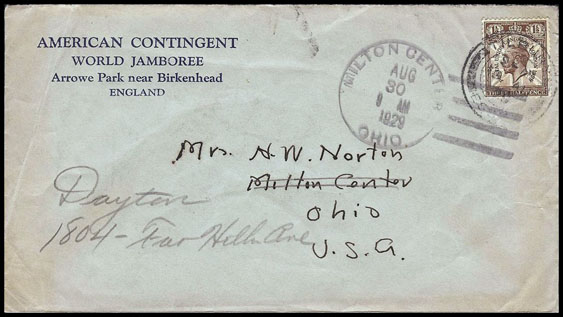 AMERICAN CONTINGENT
WORLD JAMBOREE
Arrowe Park near Birkenhead
ENGLAND
MILTON CENTER
AUG
30
AM
1929
OHIO
Mrs. H. W. Norton
Milton Center
Ohio
U.S.A.
Dayton
1804 - Far Hills Ave